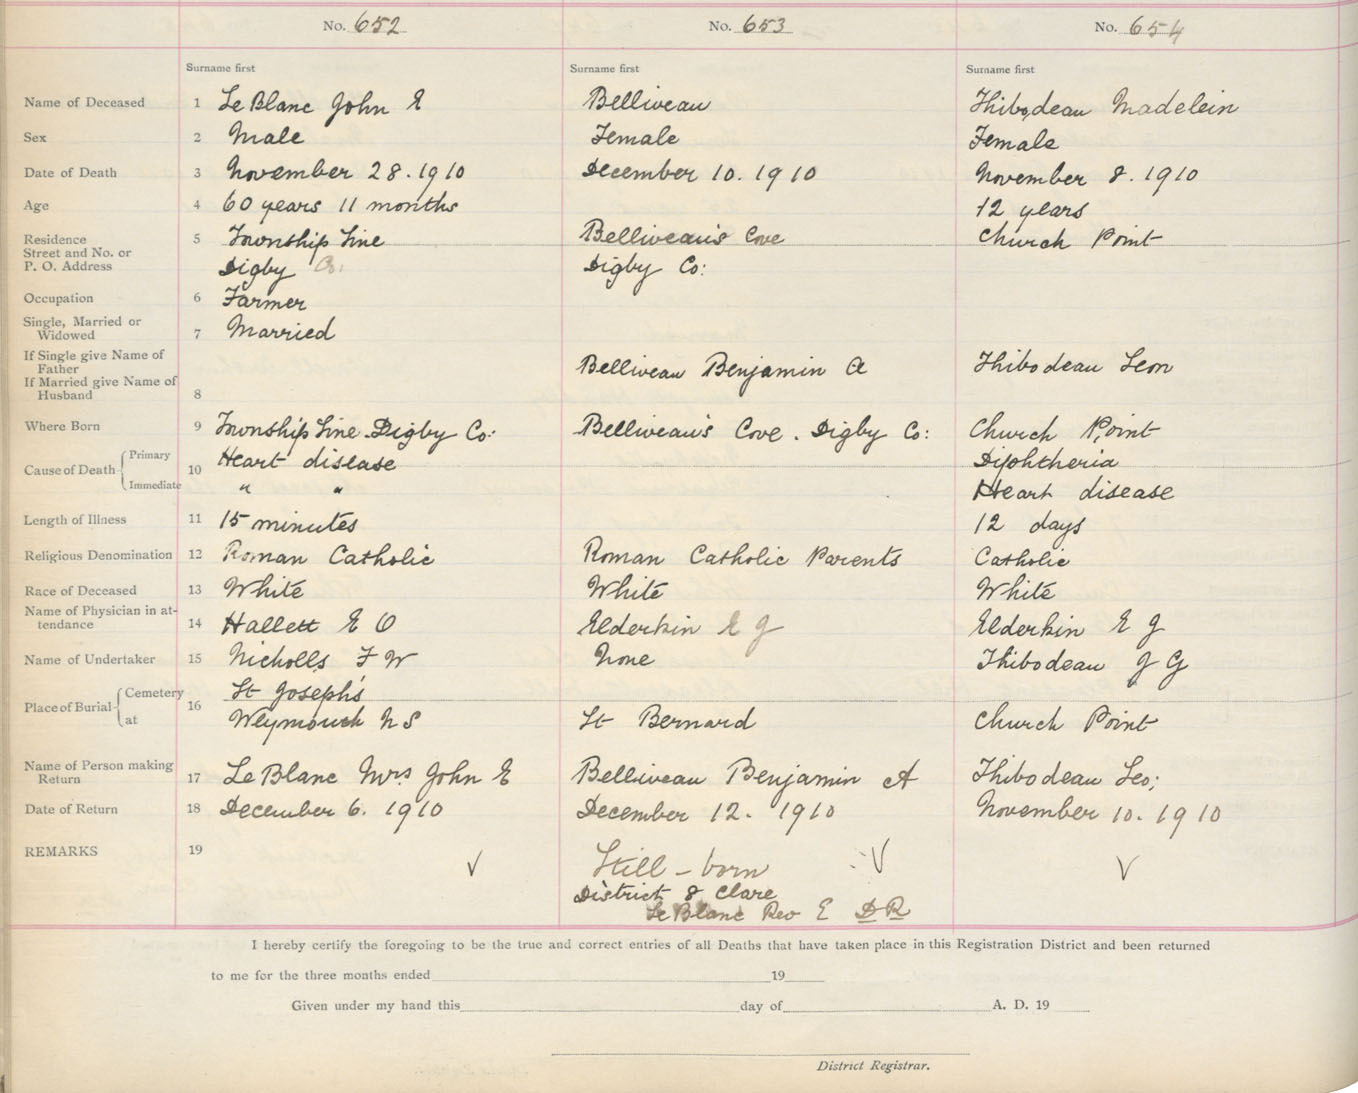 No. 652 No. 653 No. 654
Surname first Surname first Surname first
Name of Deceased 1 Le Blanc John E Belliveau Thibodeau Madelein
Sex 2 Male Female Female
Date of Death 3 November 28. 1910 December 10. 1910 November 8. 1910
Age 4 60 years 11 months 12 years
Residence 5 Township Line Belliveau's Cove Church Point
Street and No. or
P. O. Address Digby Co. Digby Co:
Occupation 6 Farmer
Single, Married or
Widowed 7 Married
If Single give Name of
Father Belliveau Benjamin A Thibodeau Leon
If Married give Name of
Husband 8
Where Born 9 Township Line Digby Co: Belliveau's Cove. Digby Co: Church Point
Cause of Death Primary 10 Heart disease Diphtheria
Immediate " " Heart disease
Length of Illness 11 15 minutes 12 days
Religious Denomination 12 Roman Catholic Roman Catholic Parents Catholic
Race of Deceased 13 White White White
Name of Physician in at-
tendance 14 Hallett E O Elderkin E J Elderkin E J
Name of Undertaker 15 Nicholls F W None Thibodeau J G
Place of Burial Cemetery 16 St Joseph's
at Weymouth N S St Bernard Church Point
Name of Person making
Return 17 Le Blanc Mrs John E Belliveau Benjamin A Thibodeau Leo;
Date of Return 18 December 6. 1910 December 12. 1910 November 10. 1910
REMARKS 19 Still-born
District 8 Clare
Le Blanc Rev E D R
I hereby certify the foregoing to be the true and correct entries of all Deaths that have taken place in this Registration District and been returned
to me for the three months ended 19
Given under my hand this day of A. D. 19
District Registrar.